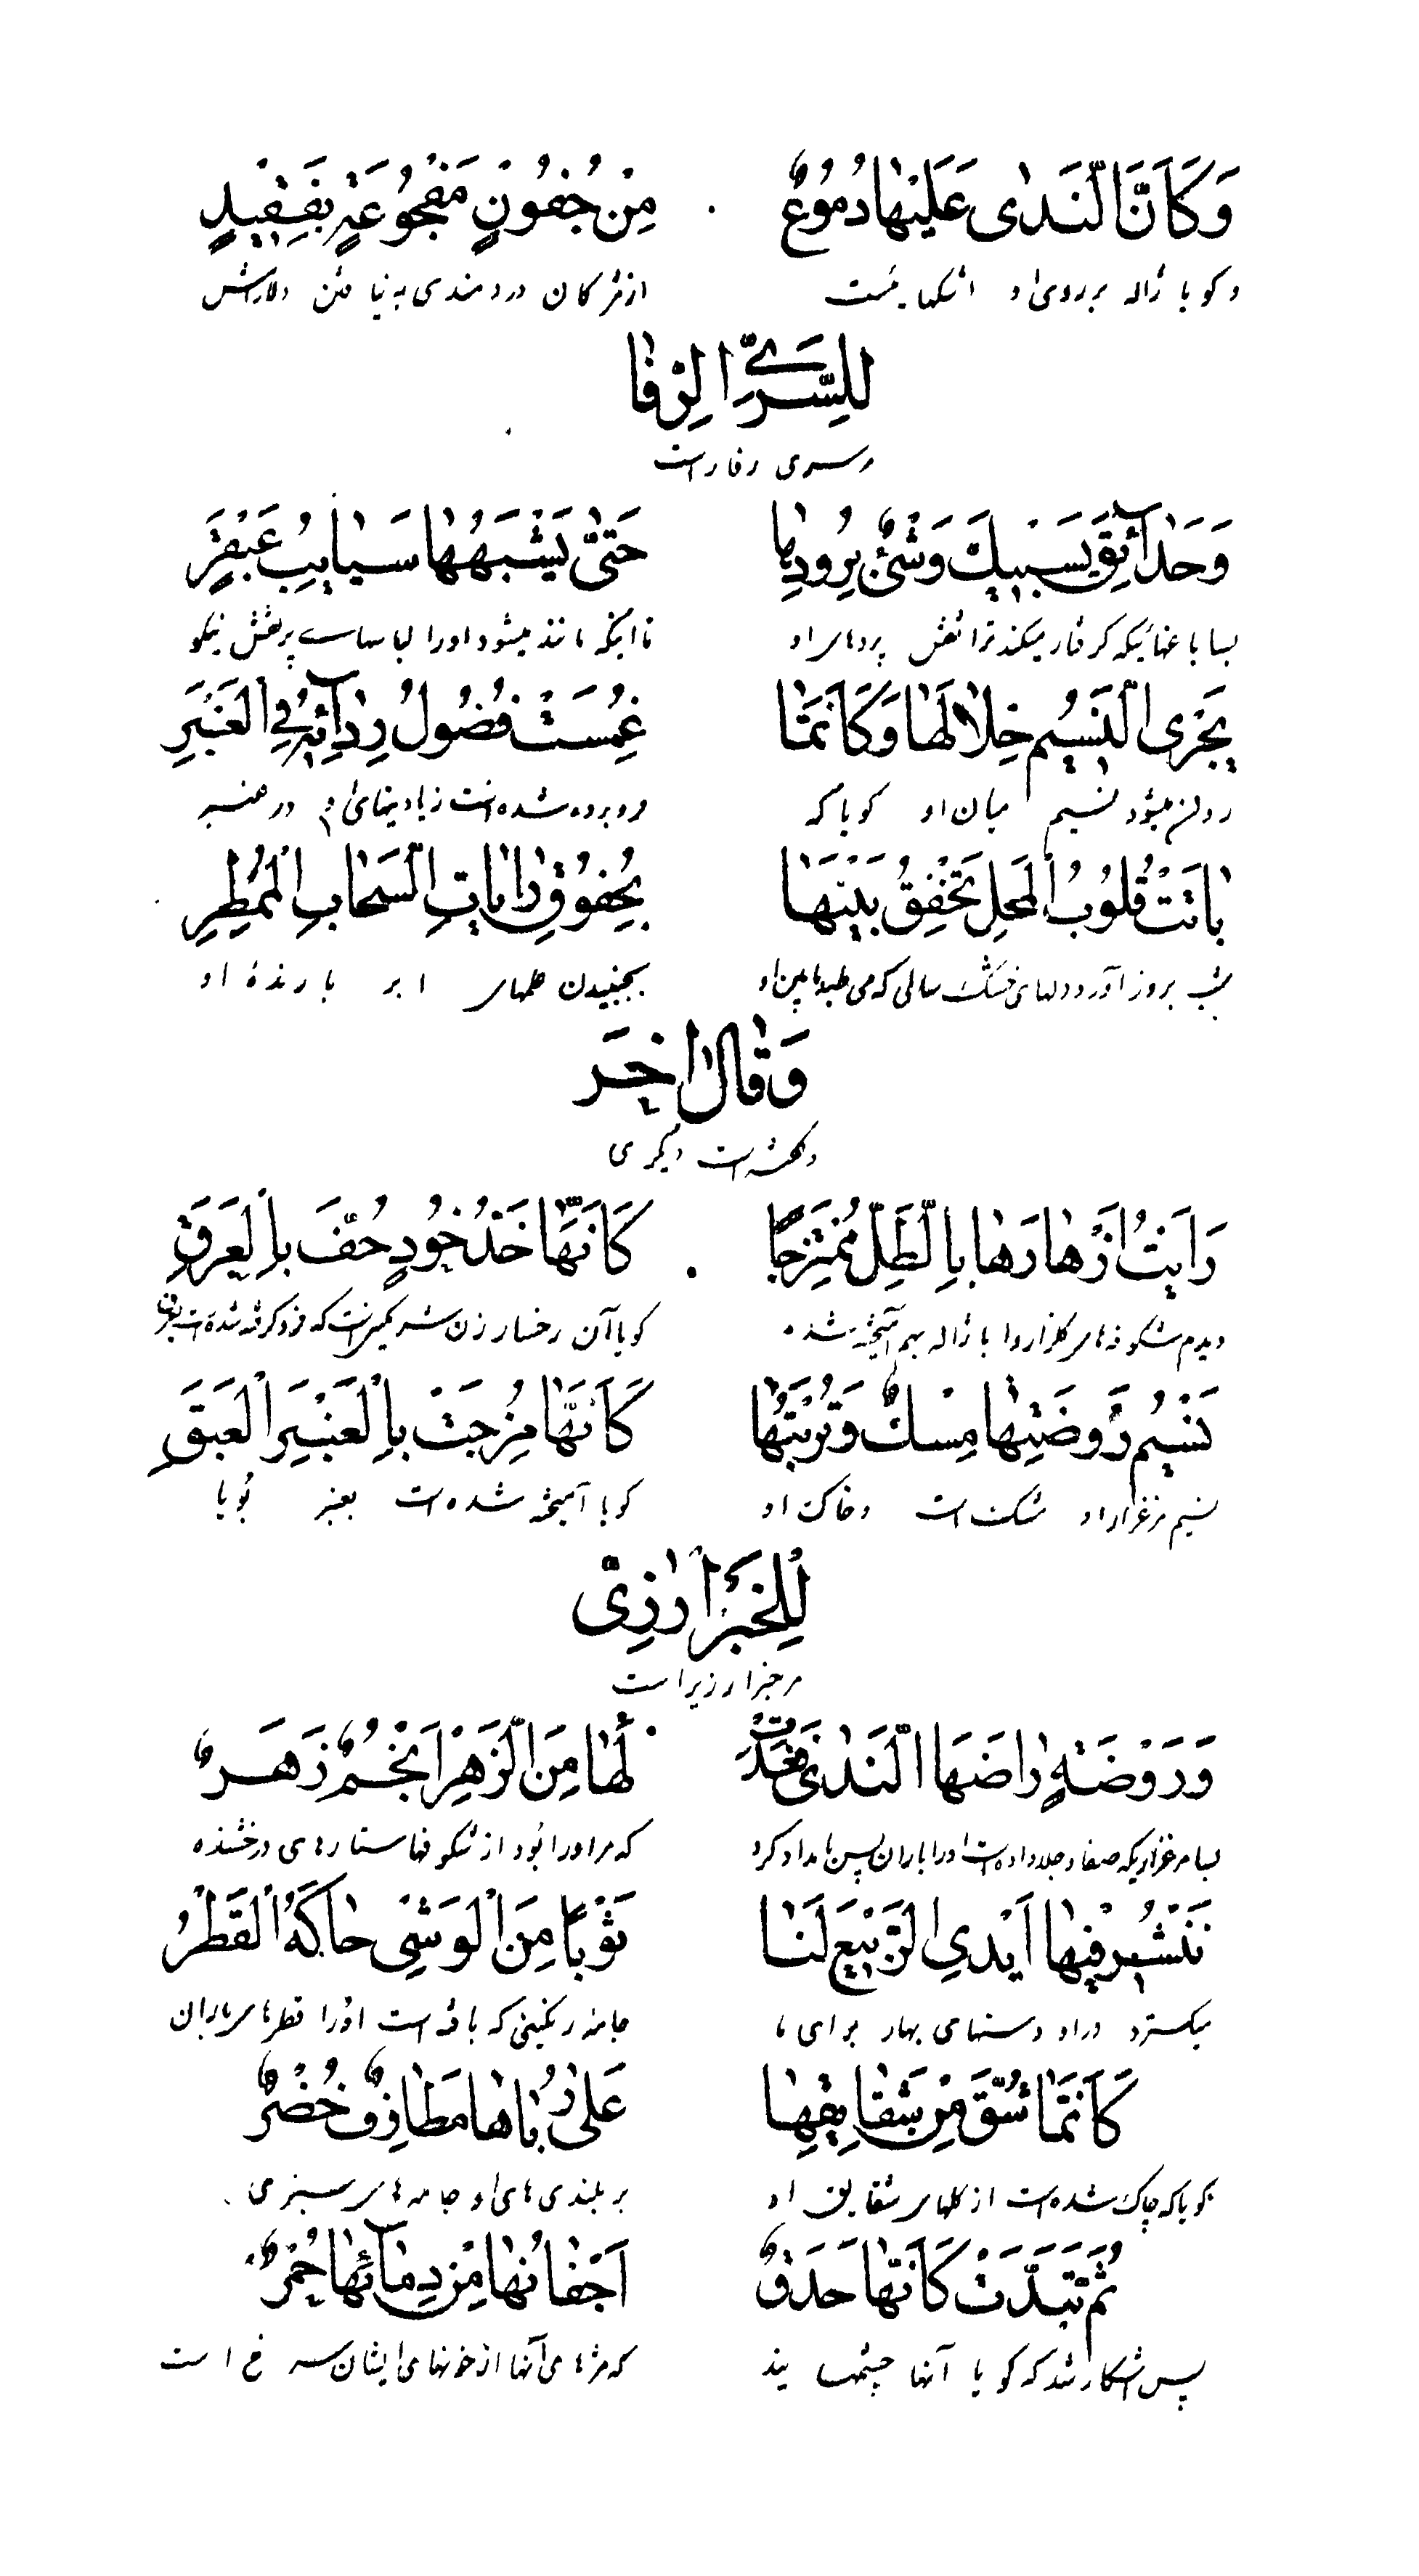 وَكَاَنَّ الَّنَدٰى عَلَيْهٰا دُمُوعٌ مِنْ جُفُونٍ مَفْجُوعَةٍ بِفَقِيْدٍ
وكويا ژاله برروى او اشكهائيست ازمژكان دردمندى
لِلسَّرِىِّ الرَّفٰا
مرسرى رفا راست
وَحَدٰائِقٍ يَسْبِيكَ وَشْىُ بُرُودِهٰا حَتّٰى يَشْبَهُهٰا سَبٰايِبُ عَبْقَرٍ
بسا باغهائيكه كرفتار ميكند ترا نقش بردهاى او تا اينكه مانند ميشود اورا لباسهاى پرنقش نيكو
يَجْرِى الَّنَسيُم خِلٰالَهٰا وَكَاَنَّمٰا غُمِسَتْ فُضُولُ رِدٰائِهِ فِى الْعَنْبَرِ
روان ميشود نسيم ميان او كويا كه فروبرده شده است زيادتيهاى او در عنبر
بٰاتَتْ قُلُوبُ الْمَحْلِ تَخْفِقُ بَيْنَهٰا بِخُفُوقِ رٰايٰاتِ الَّسَحٰابِ الْمُمْطِرِ
بشب بروز آورد دلهاى خشك سالى كه مى طپد مابين او بجنبيدن علمهاى ابر بارنده او
وَقٰالَ اٰخَر
وكفته است ديكرى
رَاَيْتُ اَزْهٰارَهٰا بِالَّطَلِّ مُمْتَزِجًا كَاَنَّهٰا خَدُّ خُودٍ حُفَّ بِالْعَرَقِ
ديدم شكوفهاى كلزار را با ژاله بهم آميخته شده كويا آن رخسار زن شرمكين است كه فروكرفته شده است
نَسْيُم رَوضَتِهٰا مِسْكٌ وَتُرْبَتُهٰا كَاَنَّهٰا مُزِجَتْ بِالْعَنْبَرِ الْعَبَقِ
نسيم مرغزار او مشكست وخاك او كويا آميخته شده است بعنبر بويا
لِلْخُبْزَ اَرُزِىّ
مرخبزارزيراست
وَرَوْضَةٍ رٰاضَهَا الَّنَدٰى فَغَدَتْ لَهٰا مِنَ الَّزَهِرْ اَنْجُمٌ زَهَرٌ
بسا مرغزاريكه صفا وجلا داده است اورا باران پس بامداد كرد كه مراورا بود از شكوفها ستارهاى درخشنده
تَنْشُرُ فِيهٰا اَيْدِى الرَّبيٖعِ لَنٰا ثَوْبًا مِنَ الْوَشْىِ حٰاكَهُ الْقَطْرُ
ميكسترد دراو دستهاى بهار براى ما جامه رنكينى كه بافته است اورا قطرهاى باران
كَاَنَّمٰا شُقَّ مِنْ شَقٰايِقِهٰا عَلٰى رُبٰاهٰا مَطٰارِفٌ خُضْرٌ
كوياكه چاك شده است از كلهاى شقايق او بر بلندى هاى او جامه هاى سبزى
ثُمَّ تَبَدَّتْ كَاَنَّهٰا حَدَقٌ اَجْفٰانُهٰا مِنْ دِمٰائِهٰا حُمْرٌ
پس آشكار شد كه كويا آنها چشمهايند كه مژهاى آنها از خونهاى ايشان سرخ است